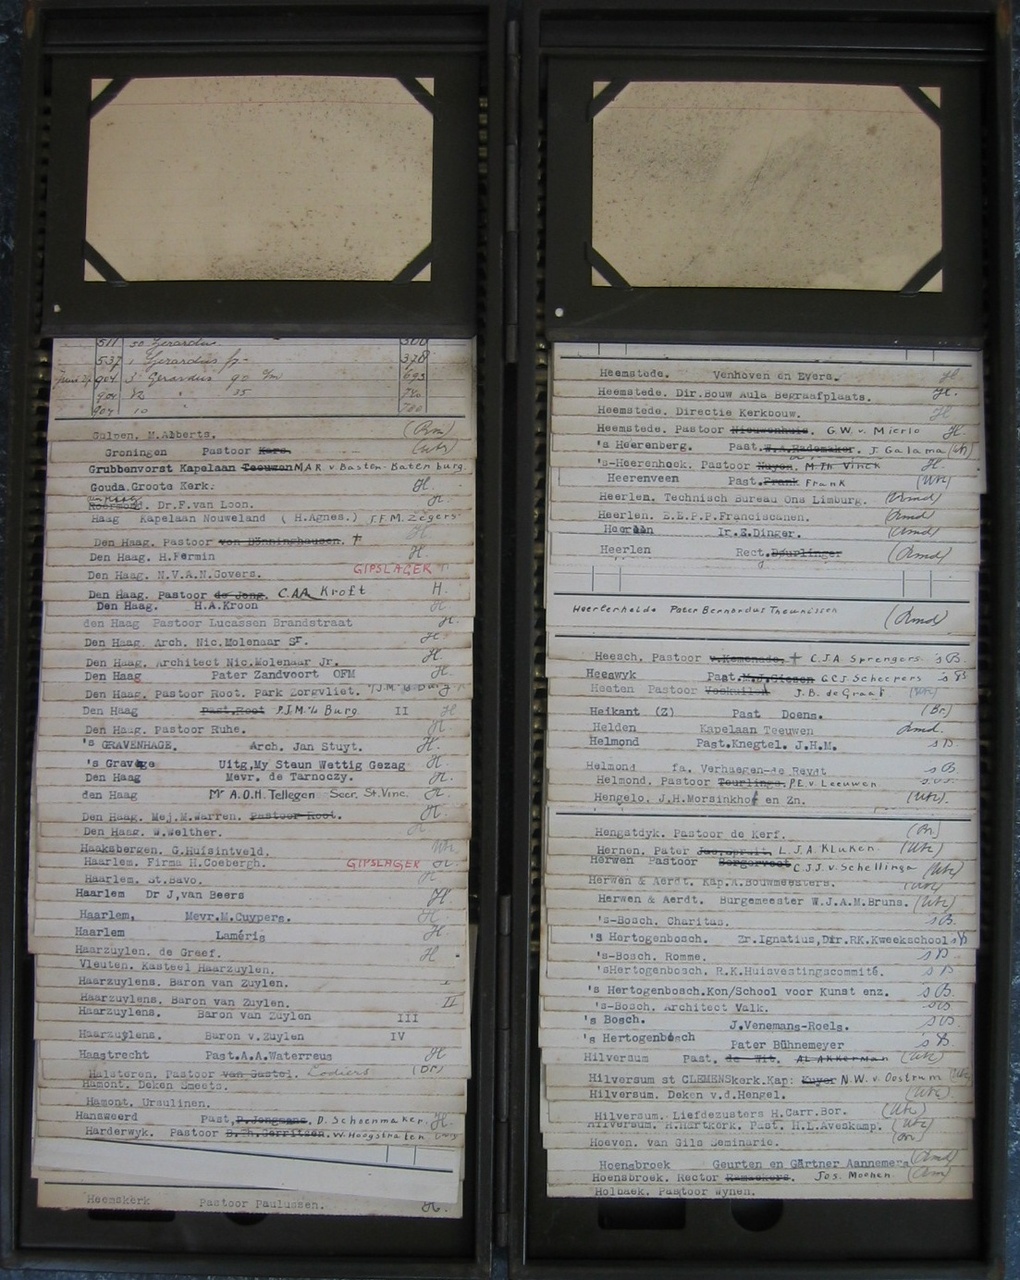 511 50 Gerardus 300
537 1 Gerardus 378
904 3 Gerardus 90 c/m 693
904 12 " 35 740
907 10 700
Gulpen, M.Alberts. (Rm)
Groningen Pastoor Kers. (Utr)
Grubbenvorst Kapelaan Teeuwen M.A.R. v. Basten-Batenburg.
Gouda. Groote Kerk. H.
Roermond. Dr.F.van Loon. H.
Haag Kapelaan Nouweland ( H.Agnes.) J.F.M. Zegers
Den Haag. Pastoor von Bönninghausen. † H
Den Haag. H.Fermin H.
Den Haag. N.V.A.N.Govers. GIPSLAGER
Den Haag. Pastoor de Jong. C.A.A. Kroft H.
Den Haag. H.A.Kroon H
den Haag Pastoor Lucassen Brandstraat H.
Den Haag. Arch. Nic.Molenaar Sr. H.
Den Haag. Architect Nic.Molenaar Jr. H.
Den Haag Pater Zandvoort OFM H.
Den Haag. Pastoor Root. Park Zorgvliet.
Den Haag Past.Root P.J.M. 'a Burg. II H
Den Haag. Pastoor Ruhe. H.
's GRAVENHAGE. Arch. Jan Stuyt. H.
's Gravege Uitg,My Steun Wettig Gezag H.
Den Haag Mevr. de Tarnoczy. H.
den Haag Mr A.O.H. Tellegen Secr. St.Vinc. H
Den Haag. Mej.M.Warren. Pastoor Root. H.
Den Haag. W.Welther. H
Haaksbergen. G.Hulsintveld. Utr.
Haarlem. Firma H.Coebergh. GIPSLAGER H.
Haarlem. St.Bavo. H
Haarlem Dr J,van Beers H
Haarlem, Mevr.M.Cuypers. H
Haarlem Laméris H
Haarzuylen. de Greef. H
Vleuten. Kasteel Haarzuylen.
Haarzuylens. Baron van Zuylen.
Haarzuylens. Baron van Zuylen. II
Haarzuylens. Baron van Zuylen III
Haarzuylens. Baron v.Zuylen IV
Haastrecht Past.A.A.Waterreus H
Halsteren. Pastoor van Gastel. (Br)
Hamont. Deken Smeets.
Hamont. Ursulinen.
Hansweerd Past. P.Jongmans. D. Schoenmaker. H
Harderwyk. Pastoor D.Th.Gerritsen. W. Hoogstraten
Heemskerk Pastoor Paulussen. H.
Heemstede. Venhoven en Evers. H
Heemstede. Dir.Bouw Aula Begraafplaats. H.
Heemstede. Directie Kerkbouw. H
Heemstede. Pastoor Nieuwenhuis. G.W. v. Mierlo H.
's Heerenberg. Past.W.A.Rademaker. J. Galama (Utr)
's-Heerenhoek. Pastoor Nuyen. M.Th. Vinck H.
Heerenveen Past.Frank Frank (Utr)
Heerlen. Technisch Bureau Ons Limburg. (Rmd)
Heerlen. E.E.P.P.Franciscanen. (Rmd)
Heerlen Ir.E.Dinger. (Rmd)
Heerlen Rect.Deurlinger (Rmd)
Heerlerheide Pater Bernardus Theunissen (Rmd)
Heesch. Pastoor v.Kemenade. † C.J.A Sprengers s B.
Heeswyk Past.M.J.Giesen G.C.J. Scheepers s B
Heeten Pastoor Voskuilen J.B. de Graaf (Utr)
Heikant (Z) Past Doens. (Br.)
Helden Kapelaan Teeuwen Rmd.
Helmond Past.Knegtel. J.H.M. s B.
Helmond fa. Verhaegen-de Reydt s B.
Helmond. Pastoor Teurlings. P.E. v. Leeuwen s B.
Hengelo. J.H.Morsinkhof en Zn. (Utr.)
Hengstdyk. Pastoor de Kerf. (Br.)
Hernen. Pater L.J.A. Kluken. (Utr)
Herwen Pastoor Bergervoet C.J.J. v. Schellinga (Utr)
Herwen & Aerdt. Kap.A.Bouwmeesters. (Utr)
Herwen & Aerdt. Burgemeester W.J.A.M.Bruns. (Utr)
's-Bosch. Charitas. s B.
's Hertogenbosch. Zr.Ignatius,Dir.RK.Kweekschool s B
's-Bosch. Romme. s B
'sHertogenbosch. R.K.Huisvestingscommité. s B
's Hertogenbosch.Kon/School voor Kunst enz. s B.
's-Bosch. Architect Valk. s B.
's Bosch. J.Venemans-Roels. s B
's Hertogenbosch Pater Bühnemeyer s B
Hilversum Past. de Wit. AL AKKERMAN (Utr)
Hilversum st CLEMENSkerk.Kap: Kuyer N.W. v. Oostrum (Utr)
Hilversum. Deken v.d.Hengel. (Utr)
Hilversum. Liefdezusters H.Carr.Bor. (Utr)
Hilversum. H.Hartkerk. Past. H.L.Aveskamp. (Utr)
Hoeven. van Gils Seminarie. (Br)
Hoensbroek Geurten en Gärtner Aannemers (Rmd)
Hoensbroek. Rector Ramaekers. Jos. Mochen. (Rm)
Holbaek. Pastoor Wynen.